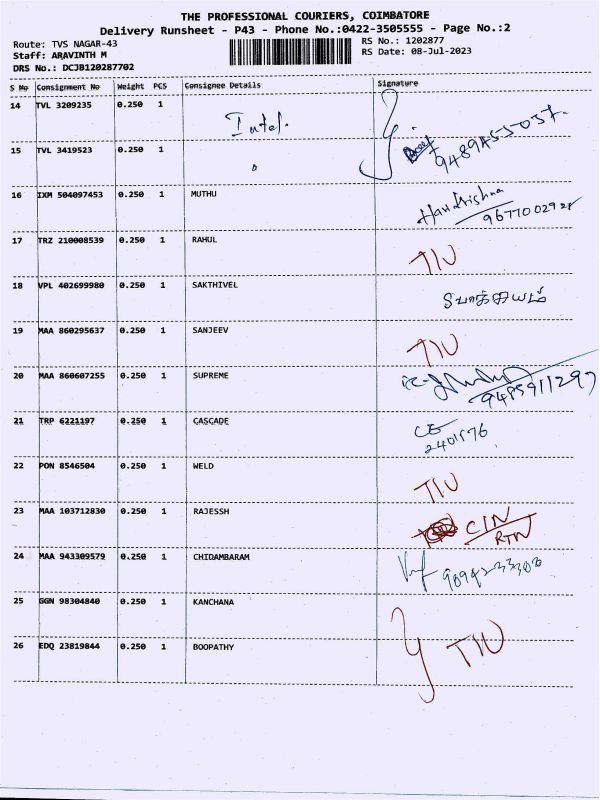 THE PROFESSIONAL COURIERS, COIMBATORE
Delivery Runsheet - P43 - Phone No.:0422-3505555 - Page No.:2
Route: TVS NAGAR-43
Staff: ARAVINTH M
DRS No.: DCJB120287702
RS No.: 1202877
RS Date: 08-Jul-2023
S No Consignment No Weight PCS Consignee Details Signature
14 TVL 3209235 0.250 1 Intel.
15 TVL 3419523 0.250 1
9489455057
16 IXM 504097453 0.250 1 MUTHU Harikrishna
17 TRZ 210008539 0.250 1 RAHUL TIU
18 VPL 402699980 0.250 1 SAKTHIVEL
19 MAA 860295637 0.250 1 SANJEEV TIU
20 MAA 860607255 0.250 1 SUPREME
21 TRP 6221197 0.250 1 CASCADE CE
2401576
22 PON 8546504 0.250 1 WELD TIU
23 MAA 103712830 0.250 1 RAJESSH CIN
RTN
24 MAA 943309579 0.250 1 CHIDAMBARAM
25 GGN 98304840 0.250 1 KANCHANA
26 EDQ 23819844 0.250 1 BOOPATHY TIU